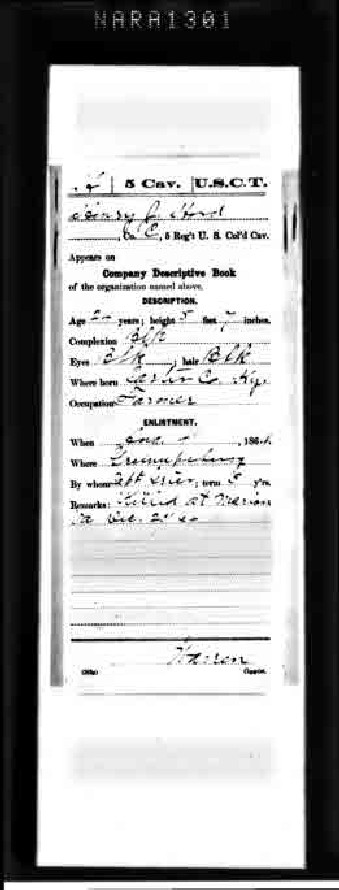 NARA1301
5 Cav. U.S.C.T.
Henry C. Hord
, Co. C, 5 Reg't U. S. Col'd Cav.
Appears on
Company Descriptive Book
of the organization named above.
DESCRIPTION.
Age years; height 5 feet 7 inches.
Complexion Blk
Eyes Blk; hair Blk
Where born Carter Co Ky.
Occupation Farmer
ENLISTMENT.
When , 186
Where
By whom Capt ; term yrs.
Remarks: Killed at Marion
Va Dec.
Copyist.